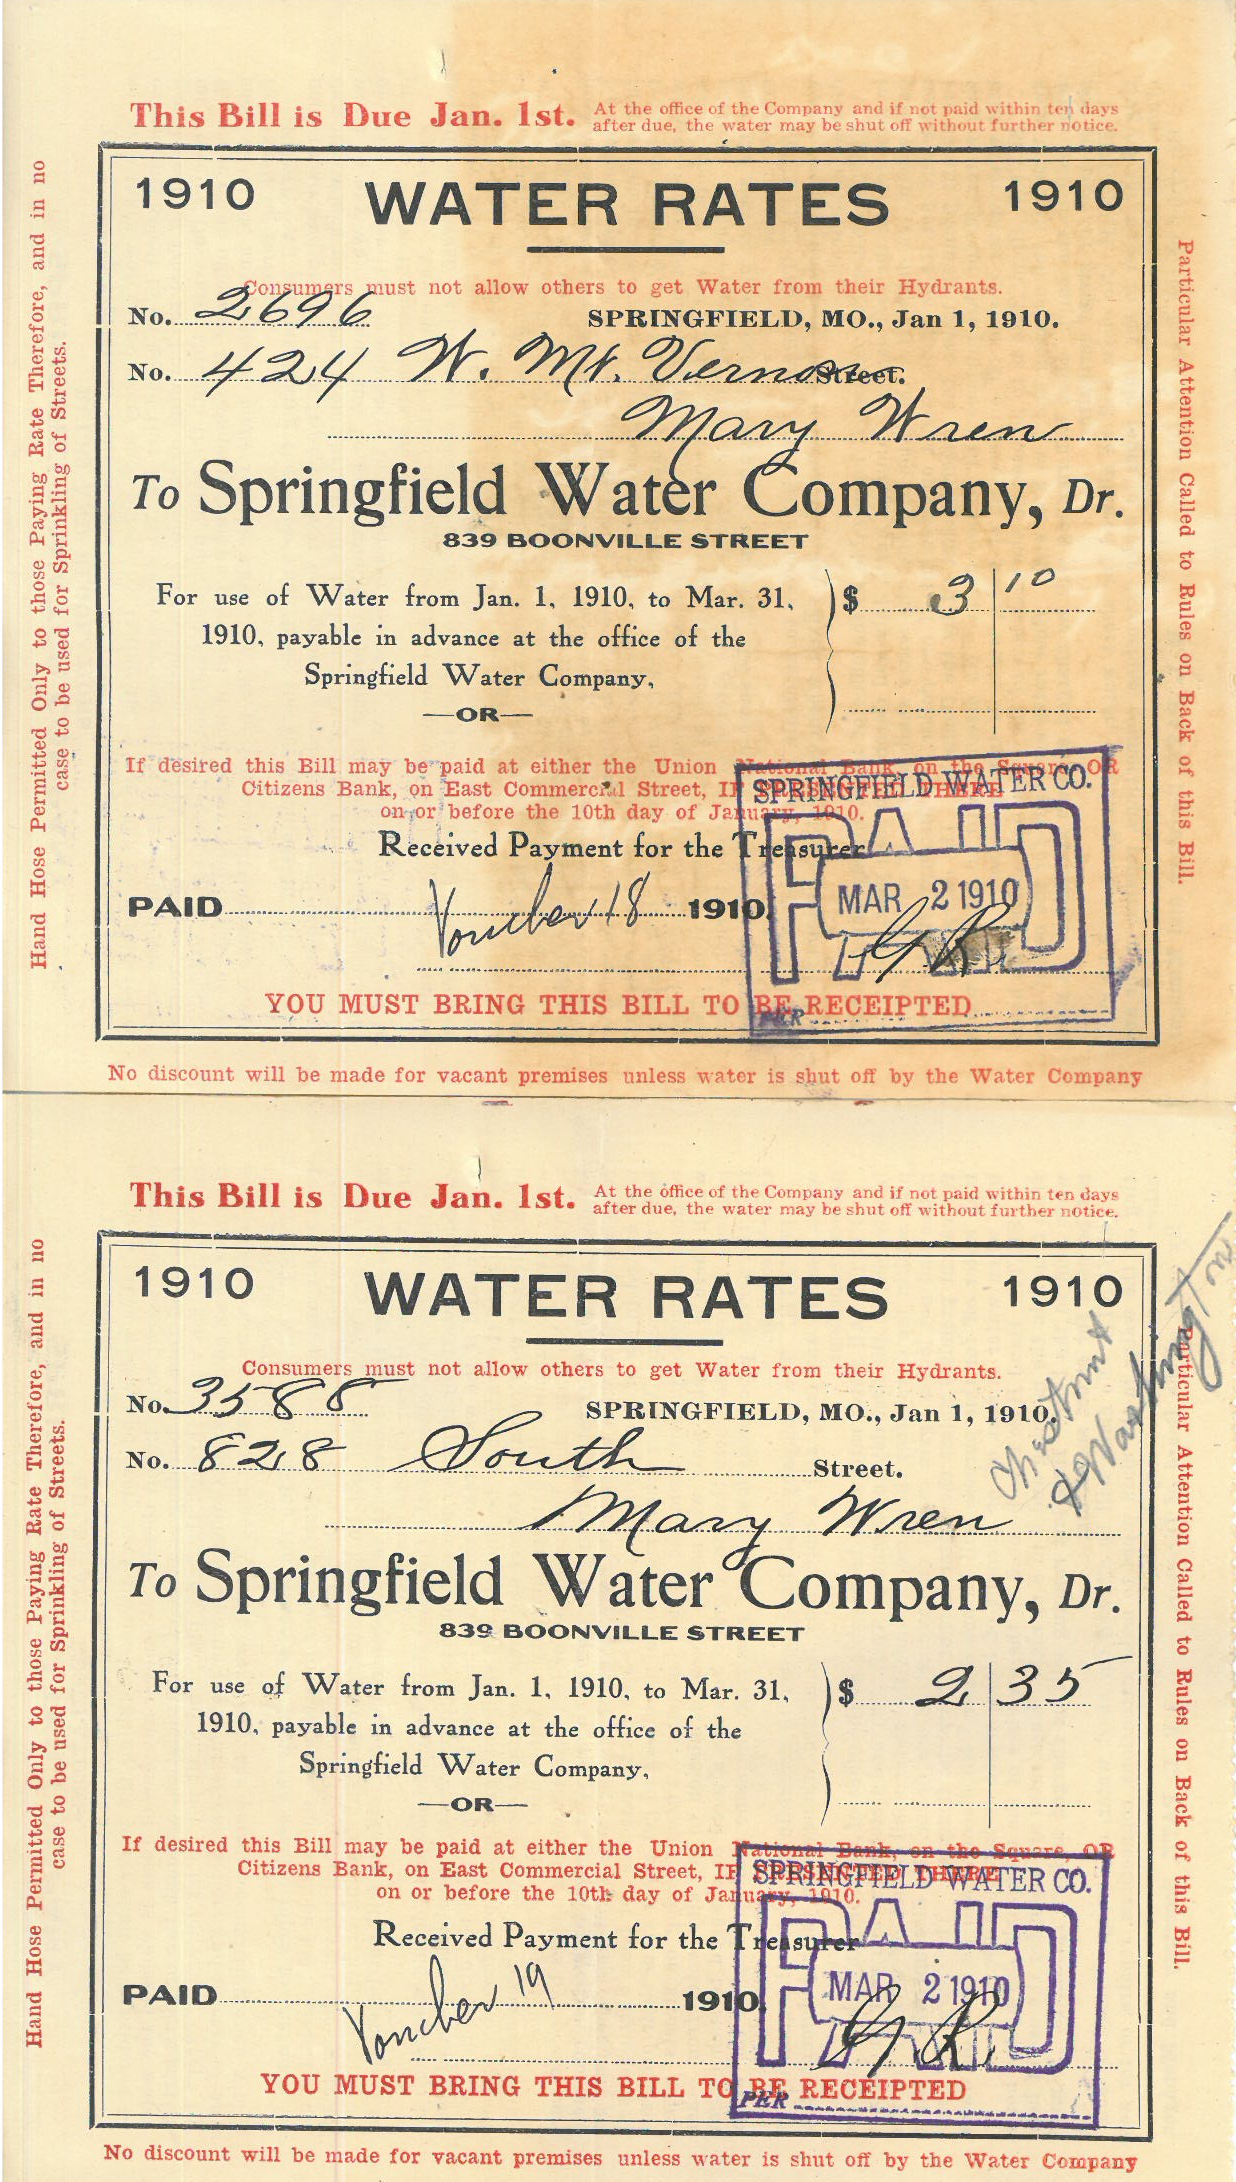 This Bill is Due Jan. 1st. At the office of the Company and if not paid within ten days
after due, the water may be shut off without further notice.
Hand Hose Permitted Only to those Paying Rate Therefore, and in no
case to be used for Sprinkling of Streets.
1910 WATER RATES 1910
Consumers must not allow others to get Water from their Hydrants.
No. 2696 SPRINGFIELD, MO., Jan 1, 1910.
No. 424 W. Mt. Vernon Street.
Mary Wren
To Springfield Water Company, Dr.
839 BOONVILLE STREET
For use of Water from Jan. 1, 1910, to Mar. 31, $ 3 10
1910, payable in advance at the office of the
Springfield Water Company,
—OR—
If desired this Bill may be paid at either the Union National Bank, on the Square, OR
Citizens Bank, on East Commercial Street, IF PRESENTED THERE
on or before the 10th day of January, 1910.
Received Payment for the Treasurer
PAID Voucher 18 1910.
SPRINGFIELD WATER CO.
PAID
MAR 2 1910
G R.
PER
YOU MUST BRING THIS BILL TO BE RECEIPTED
Particular Attention Called to Rules on Back of this Bill.
No discount will be made for vacant premises unless water is shut off by the Water Company
This Bill is Due Jan. 1st. At the office of the Company and if not paid within ten days
after due, the water may be shut off without further notice.
Hand Hose Permitted Only to those Paying Rate Therefore, and in no
case to be used for Sprinkling of Streets.
1910 WATER RATES 1910
Consumers must not allow others to get Water from their Hydrants.
No. 3588 SPRINGFIELD, MO., Jan 1, 1910.
No. 828 South Street.
Chestnut
& Washington
Mary Wren
To Springfield Water Company, Dr.
839 BOONVILLE STREET
For use of Water from Jan. 1, 1910, to Mar. 31, $ 2 35
1910, payable in advance at the office of the
Springfield Water Company,
—OR—
If desired this Bill may be paid at either the Union National Bank, on the Square, OR
Citizens Bank, on East Commercial Street, IF PRESENTED THERE
on or before the 10th day of January, 1910.
Received Payment for the Treasurer
PAID Voucher 19 1910.
SPRINGFIELD WATER CO.
PAID
MAR 2 1910
G. R.
PER
YOU MUST BRING THIS BILL TO BE RECEIPTED
Particular Attention Called to Rules on Back of this Bill.
No discount will be made for vacant premises unless water is shut off by the Water Company